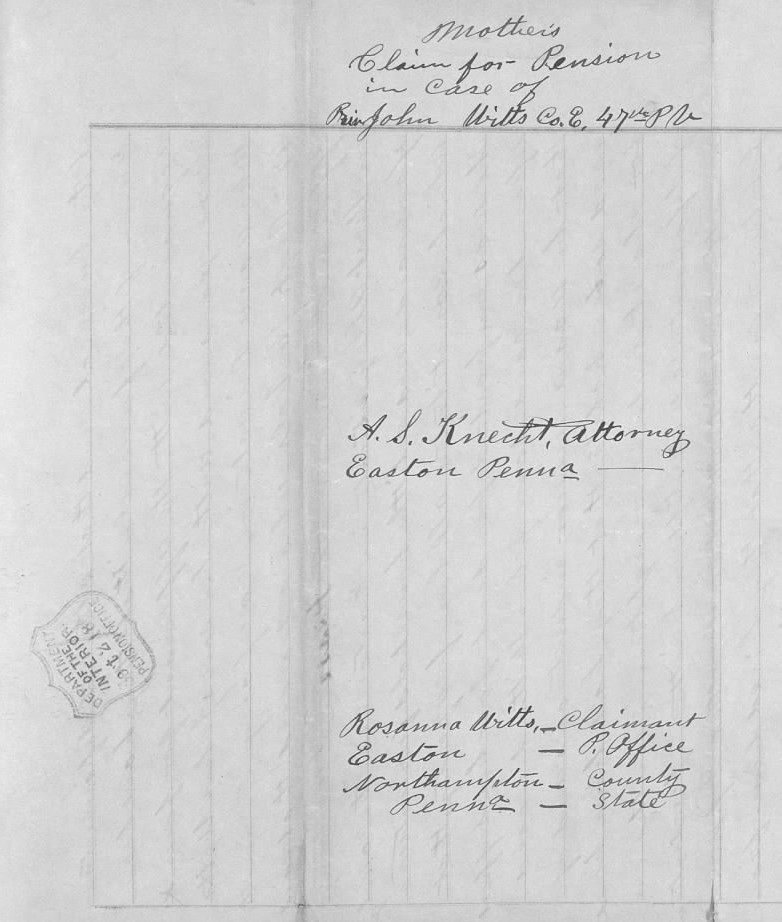 Mother's
Claim for Pension
in case of
Priv John Witts Co. E, 47th P V
A. S. Knecht, Attorney
Easton Penna
DEPARTMENT
OF THE
INTERIOR.
PENSION OFFICE
Rosanna Witts, – Claimant
Easton – P. Office
Northampton – County
Penna – State